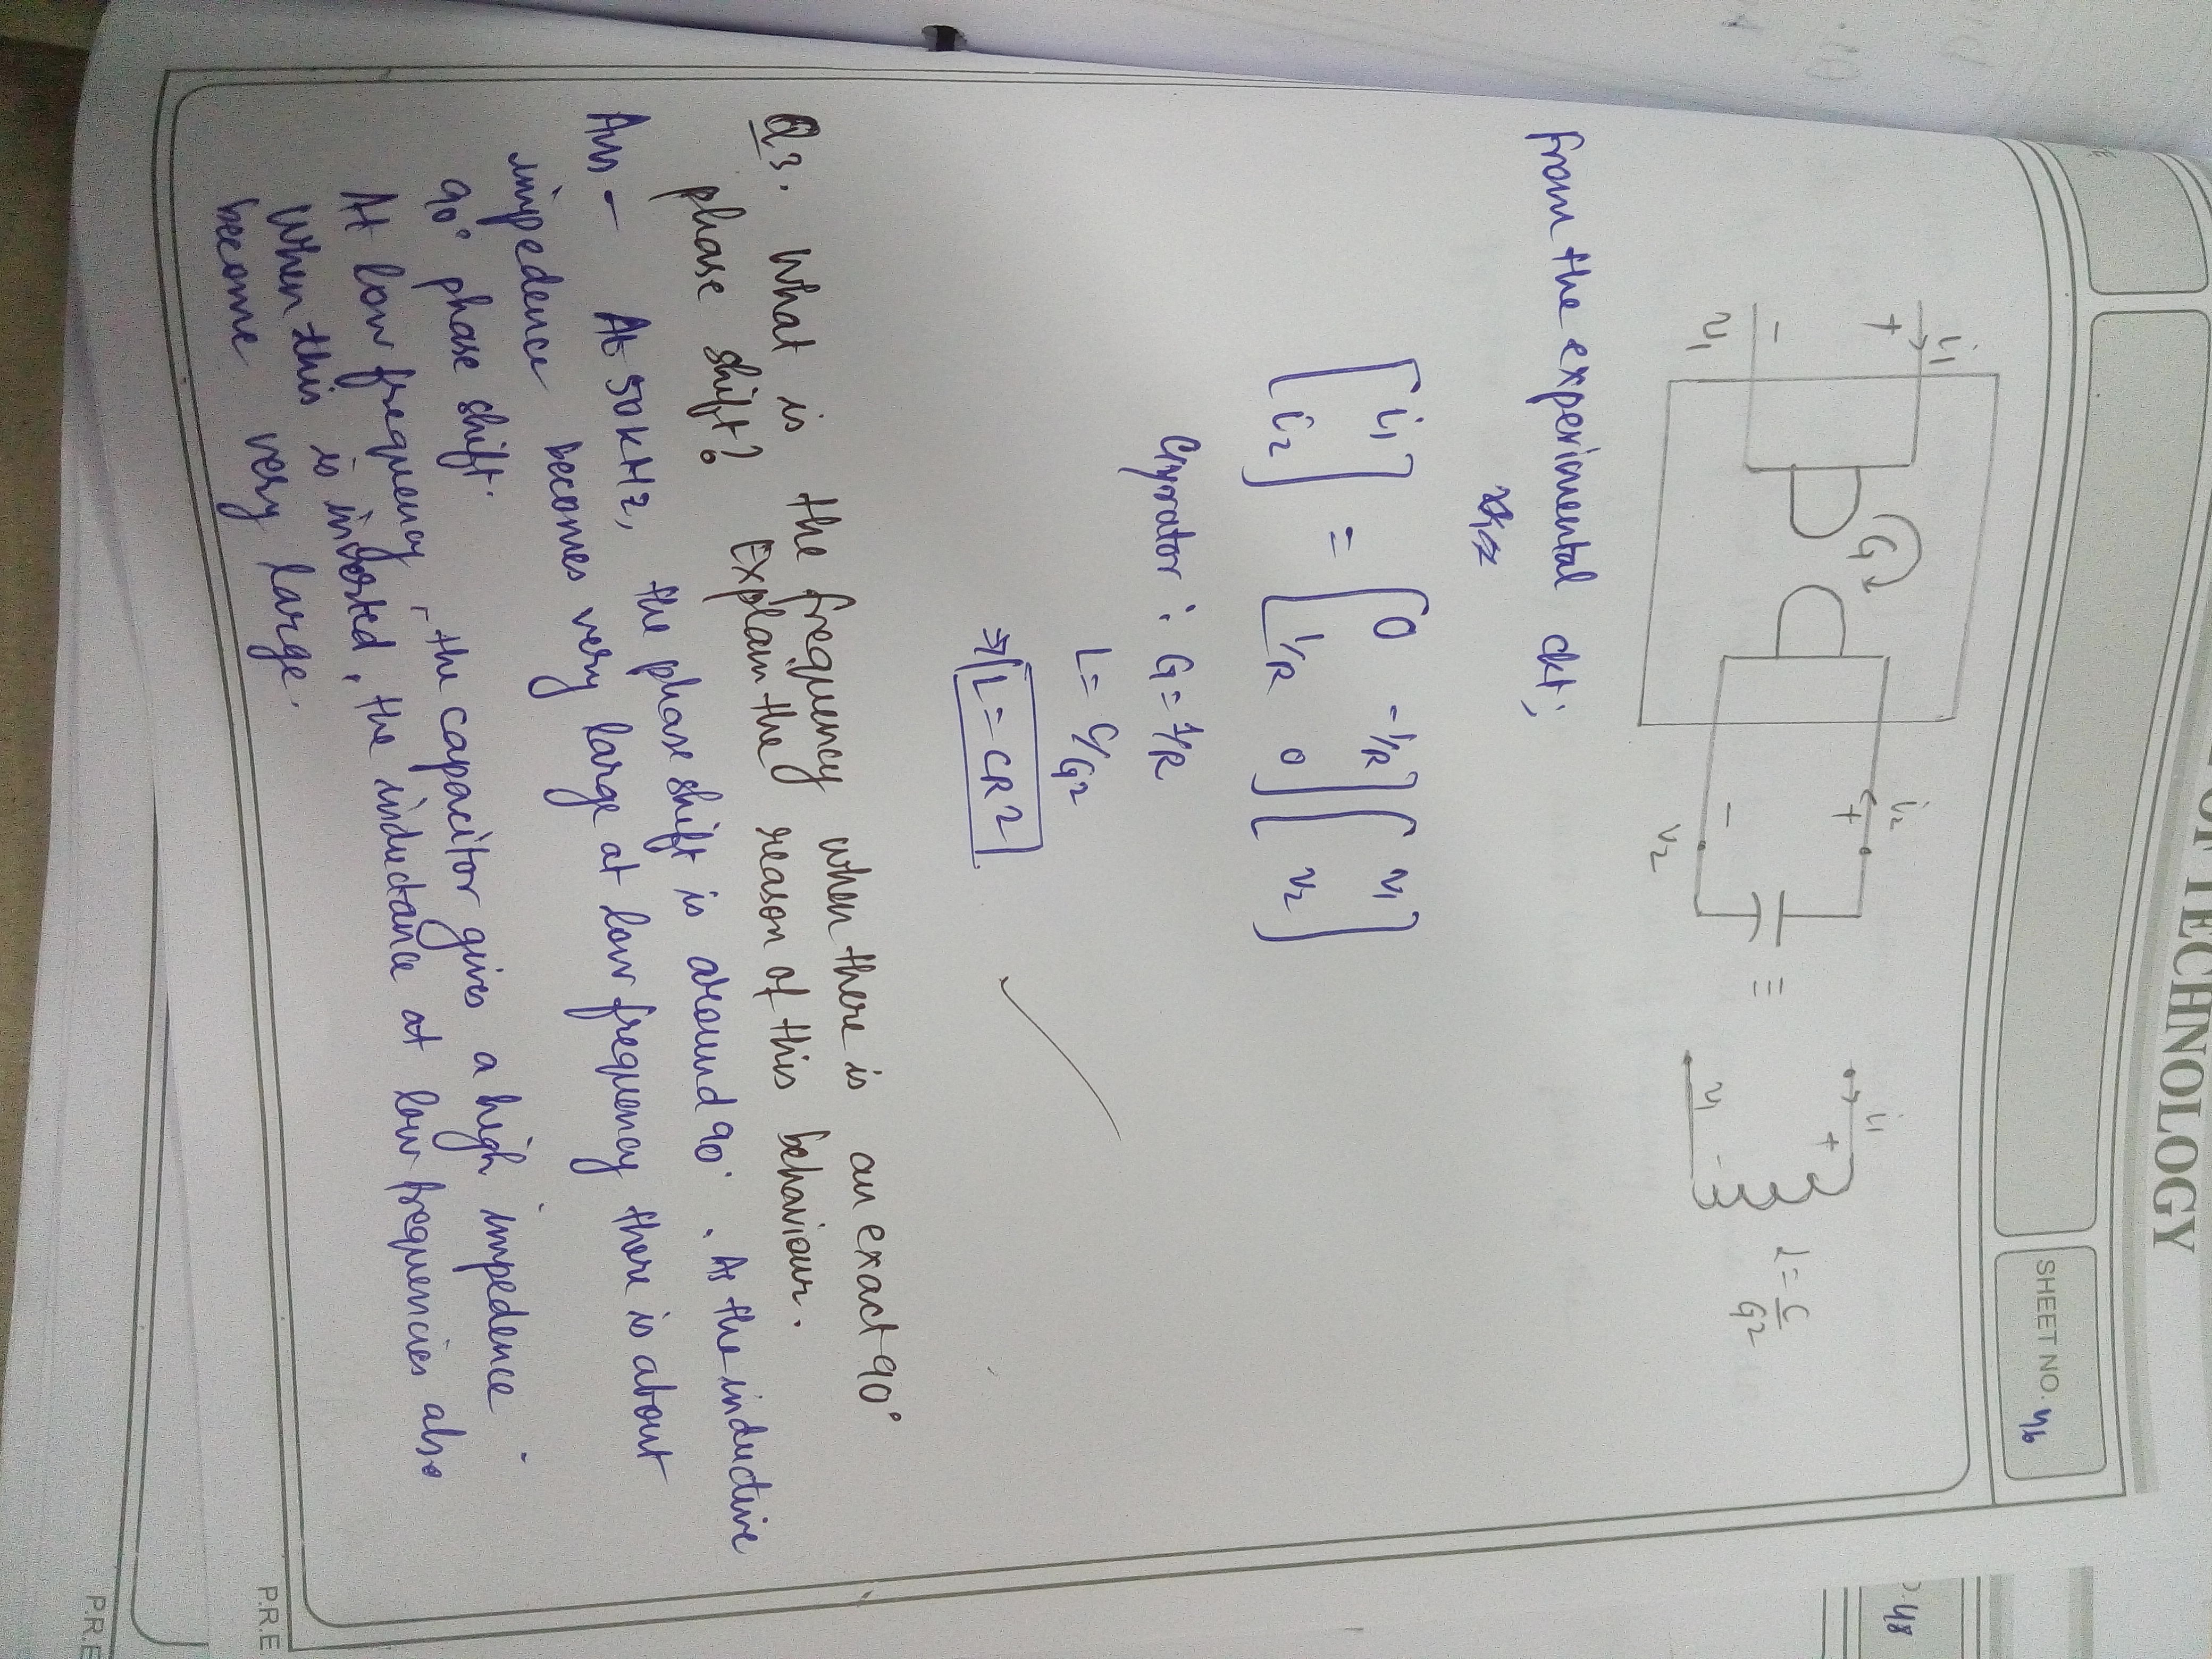 OF TECHNOLOGY
SHEET NO. 46
48
i1
+
-
v1
G
i2
+
-
v2
≡
i1
+
v1 -
L = C/G2
from the experimental ckt;
[i1 i2] = [0 -1/R 1/R 0] [v1 v2]
Gyrator : G = 1/R
L = C/G2
⇒ L = CR2
Q3. What is the frequency when there is an exact 90°
phase shift? Explain the reason of this behaviour.
Ans - At 50KHz, the phase shift is around 90°. As the inductive
impedence becomes very large at low frequency there is about
90° phase shift.
At low frequency, the capacitor gives a high impedence.
When this is inverted, the inductance at low frequencies also
become very large.
P.R.E
P.R.E